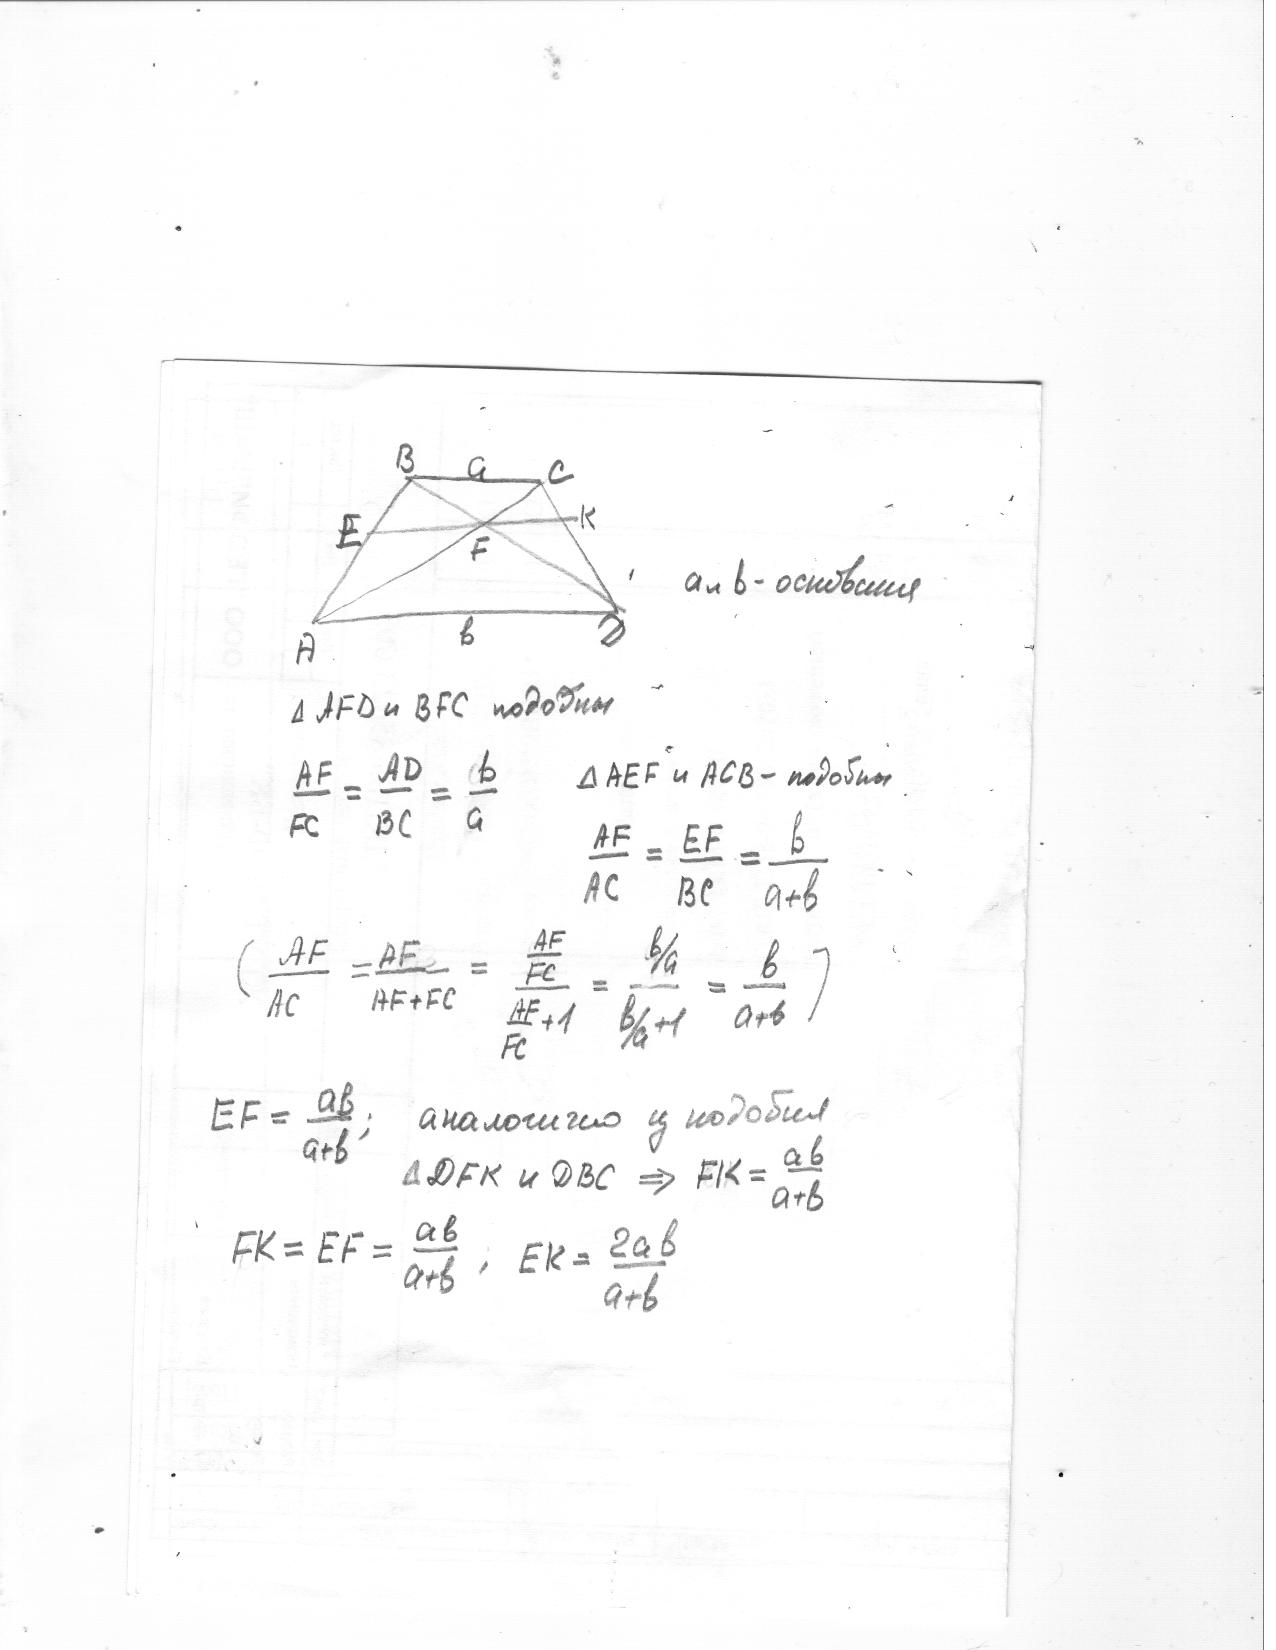 B a C
E F K
a и b - основания
A b D
Δ AFD и BFC подобны
AF/FC = AD/BC = b/a
Δ AEF и ACB - подобны
AF/AC = EF/BC = b/(a+b)
( AF/AC = AF/(AF+FC) = (AF/FC)/(AF/FC +1) = (b/a)/(b/a +1) = b/(a+b) )
EF = ab/(a+b); аналогично из подобия
Δ DFK и DBC ⇒ FK = ab/(a+b)
FK = EF = ab/(a+b), EK = 2ab/(a+b)